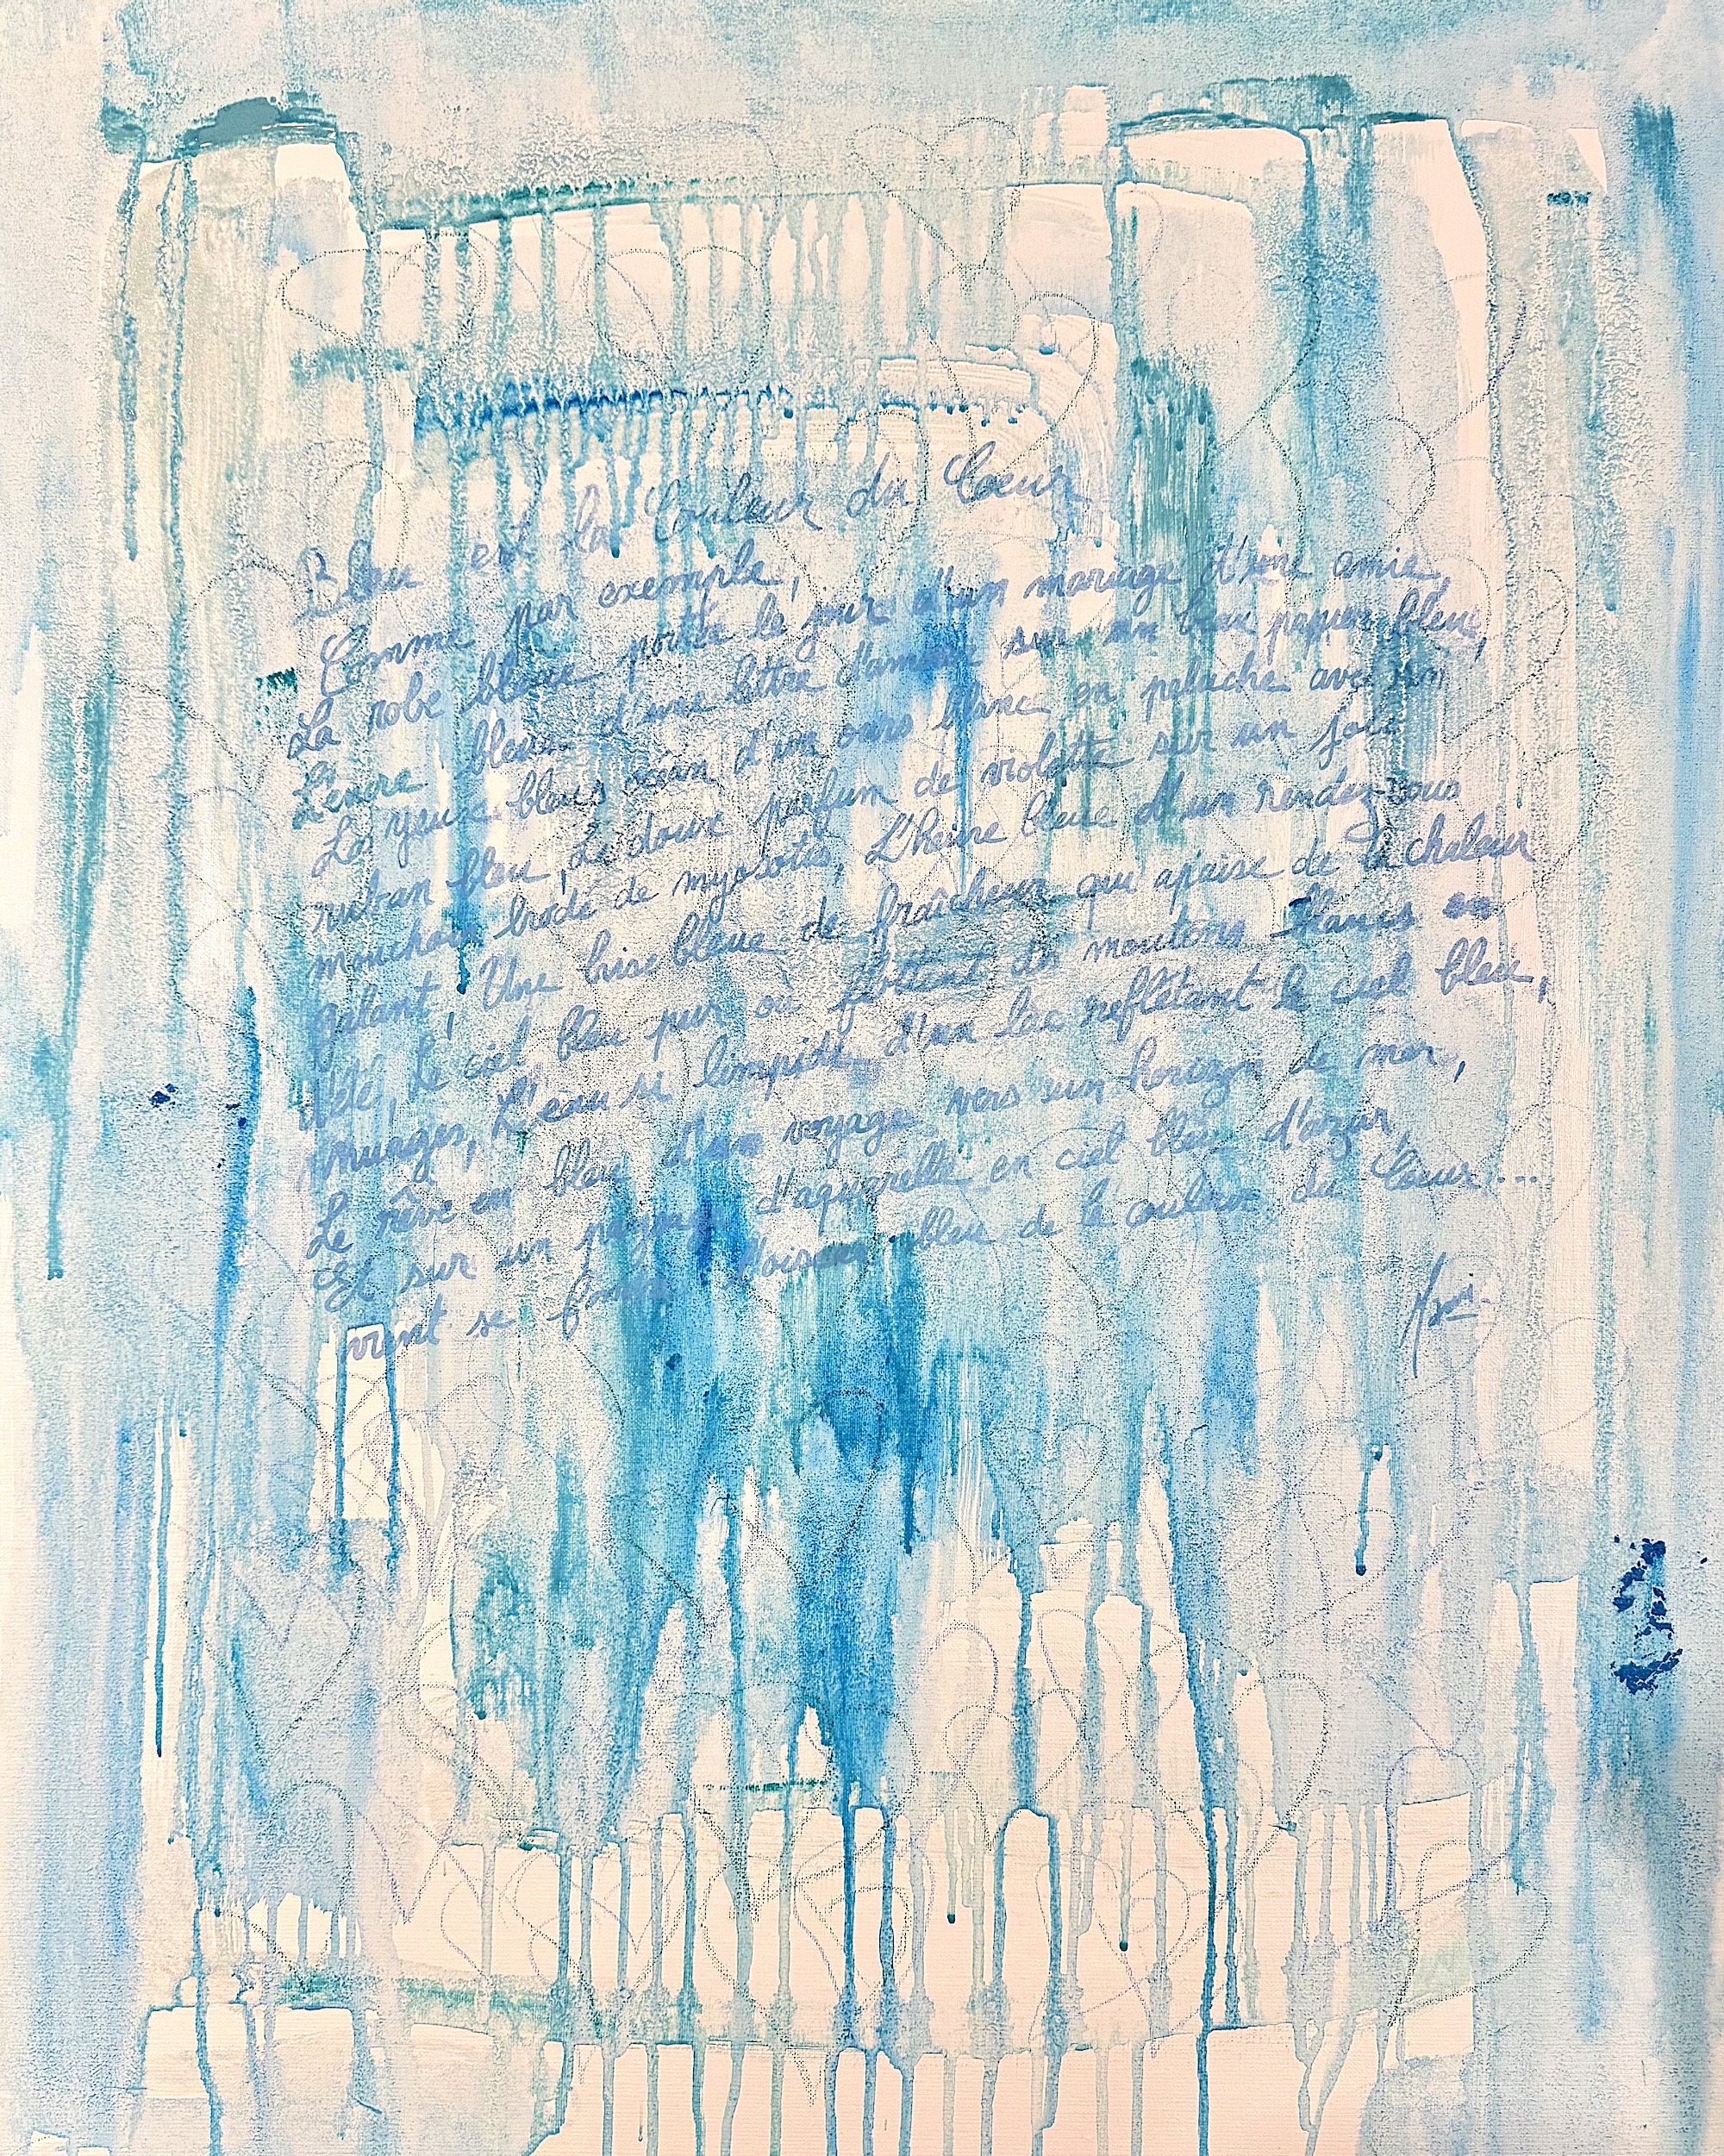 Bleu est la Couleur du Coeur
Comme par exemple,
La robe bleue portée le jour d'un mariage d'une amie,
L'encre bleue d'une lettre d'amour sur un beau papier bleu,
Les yeux bleus océan d'un ours blanc en peluche avec un
ruban bleu, Le doux parfum de violette sur un joli
mouchoir brodé de myosotis, L'heure bleue d'un rendez-vous
galant, Une brise bleue de fraîcheur qui apaise de la chaleur
d'été, Le ciel bleu pur où flottent des moutons blancs en
nuages, L'eau si limpide d'un lac reflétant le ciel bleu,
Le rêve en bleu d'un voyage vers un horizon de mer,
Et sur un paysage d'aquarelle en ciel bleu d'azur,
vient se fondre l'oiseau bleu de la couleur du Coeur...